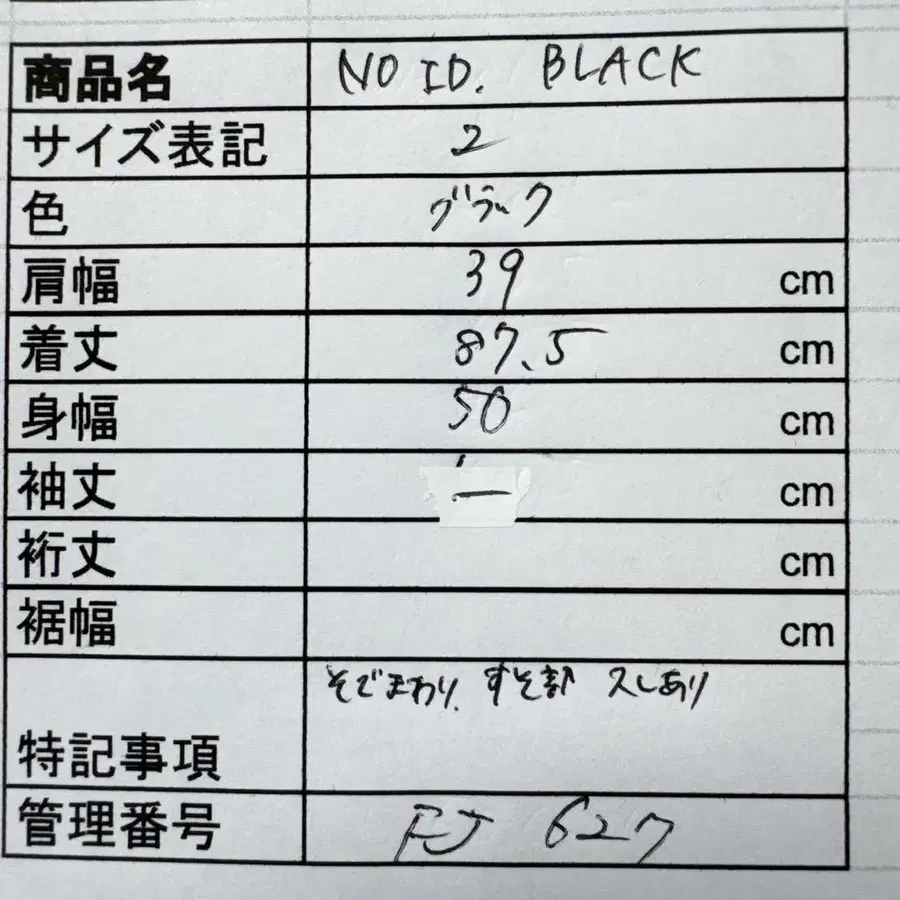 商品名 NO ID. BLACK
サイズ表記 2
色 ブラック
肩幅 39 cm
着丈 87.5 cm
身幅 50 cm
袖丈 ー cm
裄丈 cm
裾幅 cm
特記事項 そでまわり、すそ部 スレあり
管理番号 FJ 627